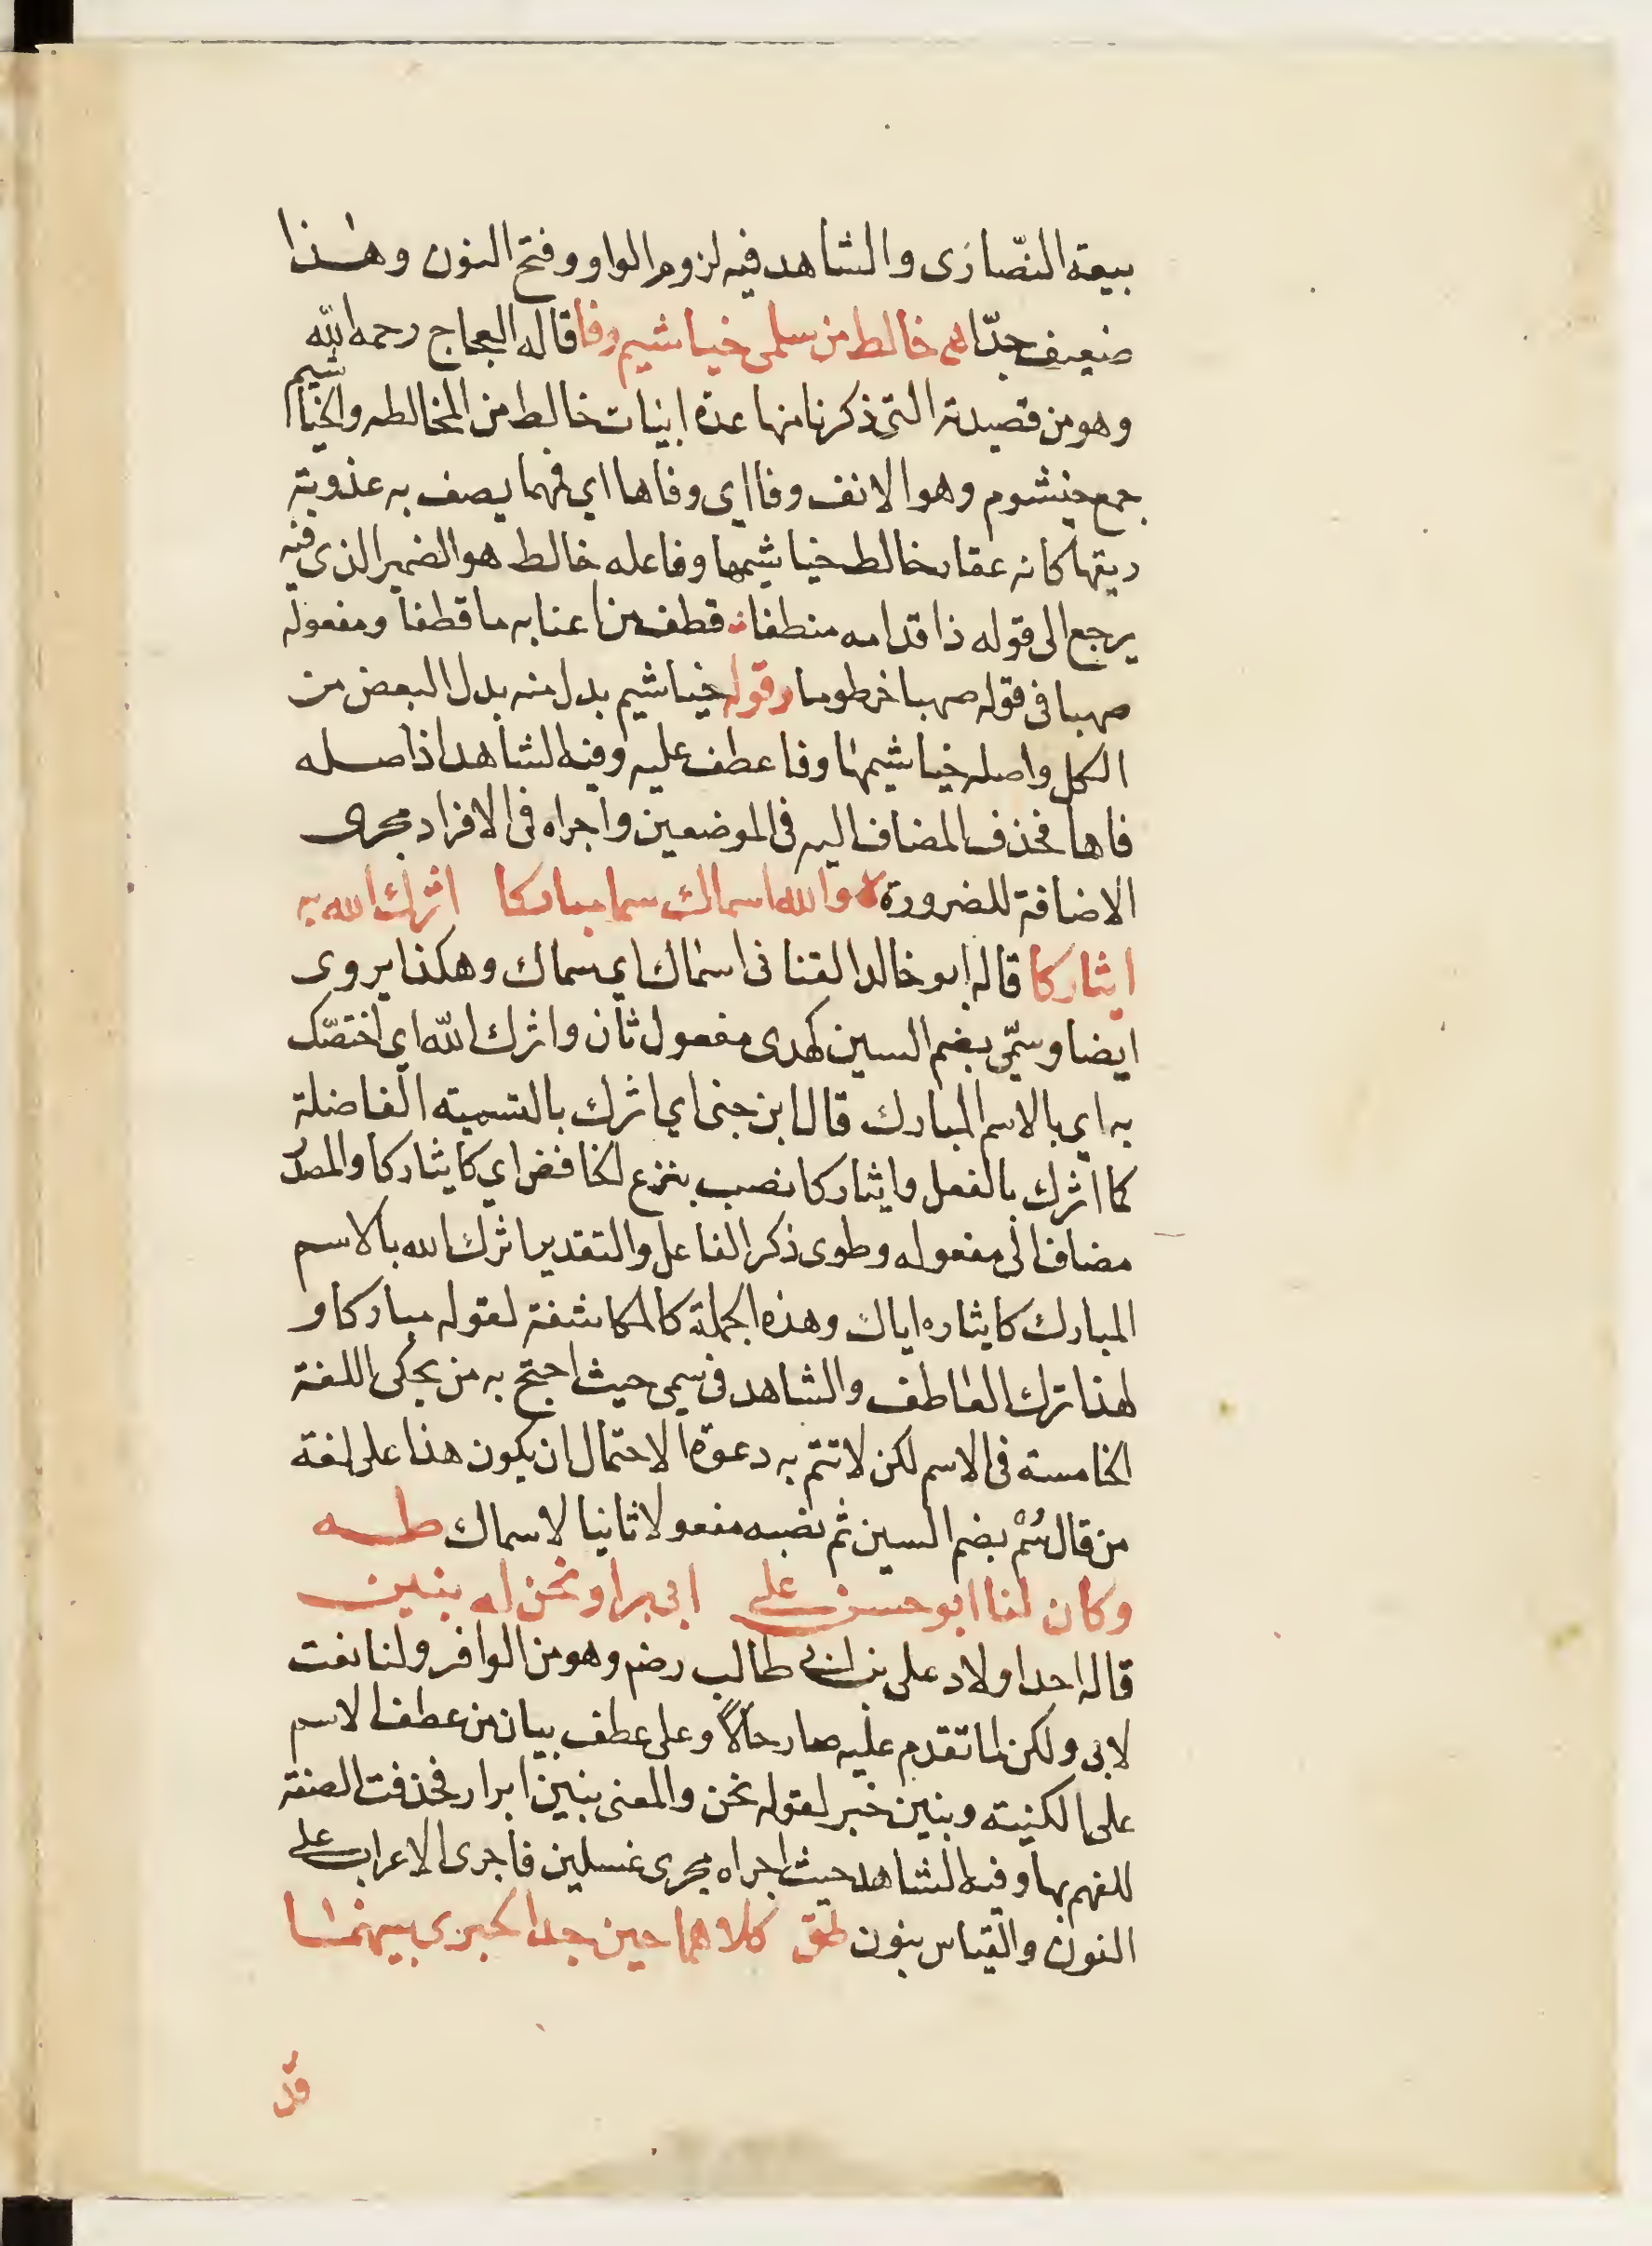 بيعة النّصارَى والشاهد فيه لزوم الواو وفتح النون وهٰذا
ضعيف جدّا خالط من سلمى خياشيم وفا قاله العجاج رحمه اللّه
وهو من قصيدته التى ذكرنا منها عدة ابيات خالط من المخالطه والخياشيم
جمع خيشوم وهو الانف وفا اى وفاها اى فهما يصف به عذوبة
ريقها كانه عقار خالط خياشيمها وفاعله خالط هو الضمير الذى فيه
يرجع الى قوله ذا قدامه منطفا قطف من اعنابه ما قطفا ومفعوله
صهبا فى قوله صهبا خرطوما وقوله خياشيم بدل منه بدل البعض من
الكل واصله خياشيمها وفا عطف عليه وفيه الشاهد اذ اصله
فاها فحذف المضاف اليه فى الموضعين واجراه فى الافراد مجرى
الاضافة للضرورة والله اسماك سما مباركا اثرك الله به
ايثاركا قاله ابو خالد القنانى اسماك اي سماك وهكذا يروى
ايضا وسمّى بضم السين كهدى مفعول ثان واثرك اللّه اي اختصّك
به اي بالاسم المبارك قال ابن جنى اي اثرك بالتسميته الفاضلة
كما اثرك بالفعل وايثاركا نصب بنزع الخافض اي كايثاركا والمصدر
مضاف الى مفعوله وطوى ذكر الفاعل والتقدير اثرك الله بالاسم
المبارك كايثاره اياك وهذه الجملة كالمكاشفة لقوله مباركا و
لهذا ترك العاطف والشاهد فى سمى حيث احتج به من يحكى اللغة
الخامسته فى الاسم لكن لا تتم به دعوة لاحتمال ان يكون هذا على لغة
من قال سُمْ بضم السين ثم نصبه مفعولا ثانيا لاسماك
وكان لنا ابو حسن على ابى برا ونحن له بنين
قاله احد اولاد على بن ابى طالب رضه وهو من الوافر ولنا نعت
لابى ولكن لما تقدم عليه صار حالاً وعلى عطف بيان من عطف الاسم
على الكنيته وبنين خبر لقوله نحن والمعنى بنين ابرار فحذفت الصفة
للفهم بها وفيه الشاهد حيث اجراه مجرى غسلين فاجرى الاعراب على
النون والقياس بنون كلاهما حين جد الجرى بينهمـا
قد